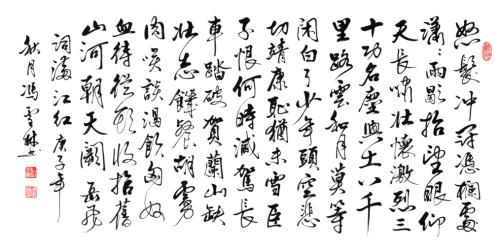 怒髮冲冠憑欄處
瀟瀟雨歇抬望眼仰
天長嘯壯懷激烈三
十功名塵與土八千
里路雲和月莫等
閑白了少年頭空悲
切靖康恥猶未雪臣
子恨何時滅駕長
車踏破賀蘭山缺
壯志饑餐胡虜
肉笑談渴飲匈奴
血待從頭收拾舊
山河朝天闕岳飛
詞滿江紅庚子年
秋月馮雪